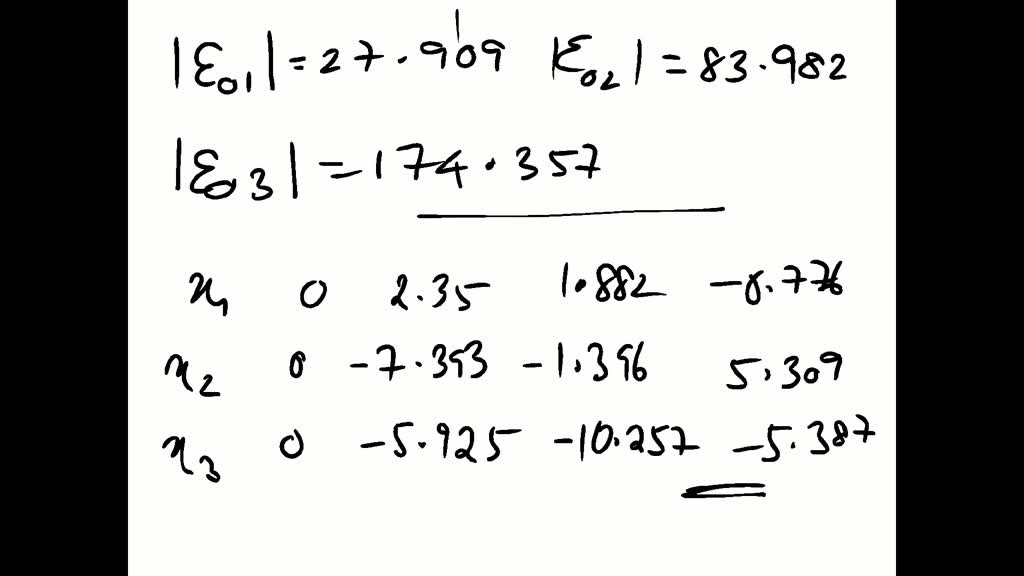 |ε₀₁| = 27.909 |ε₀₂| = 83.982
|ε₀₃| = 174.357
x₁ 0 2.35 1.882 -8.776
x₂ 0 -7.393 -1.396 5.309
x₃ 0 -5.925 -10.257 -5.387